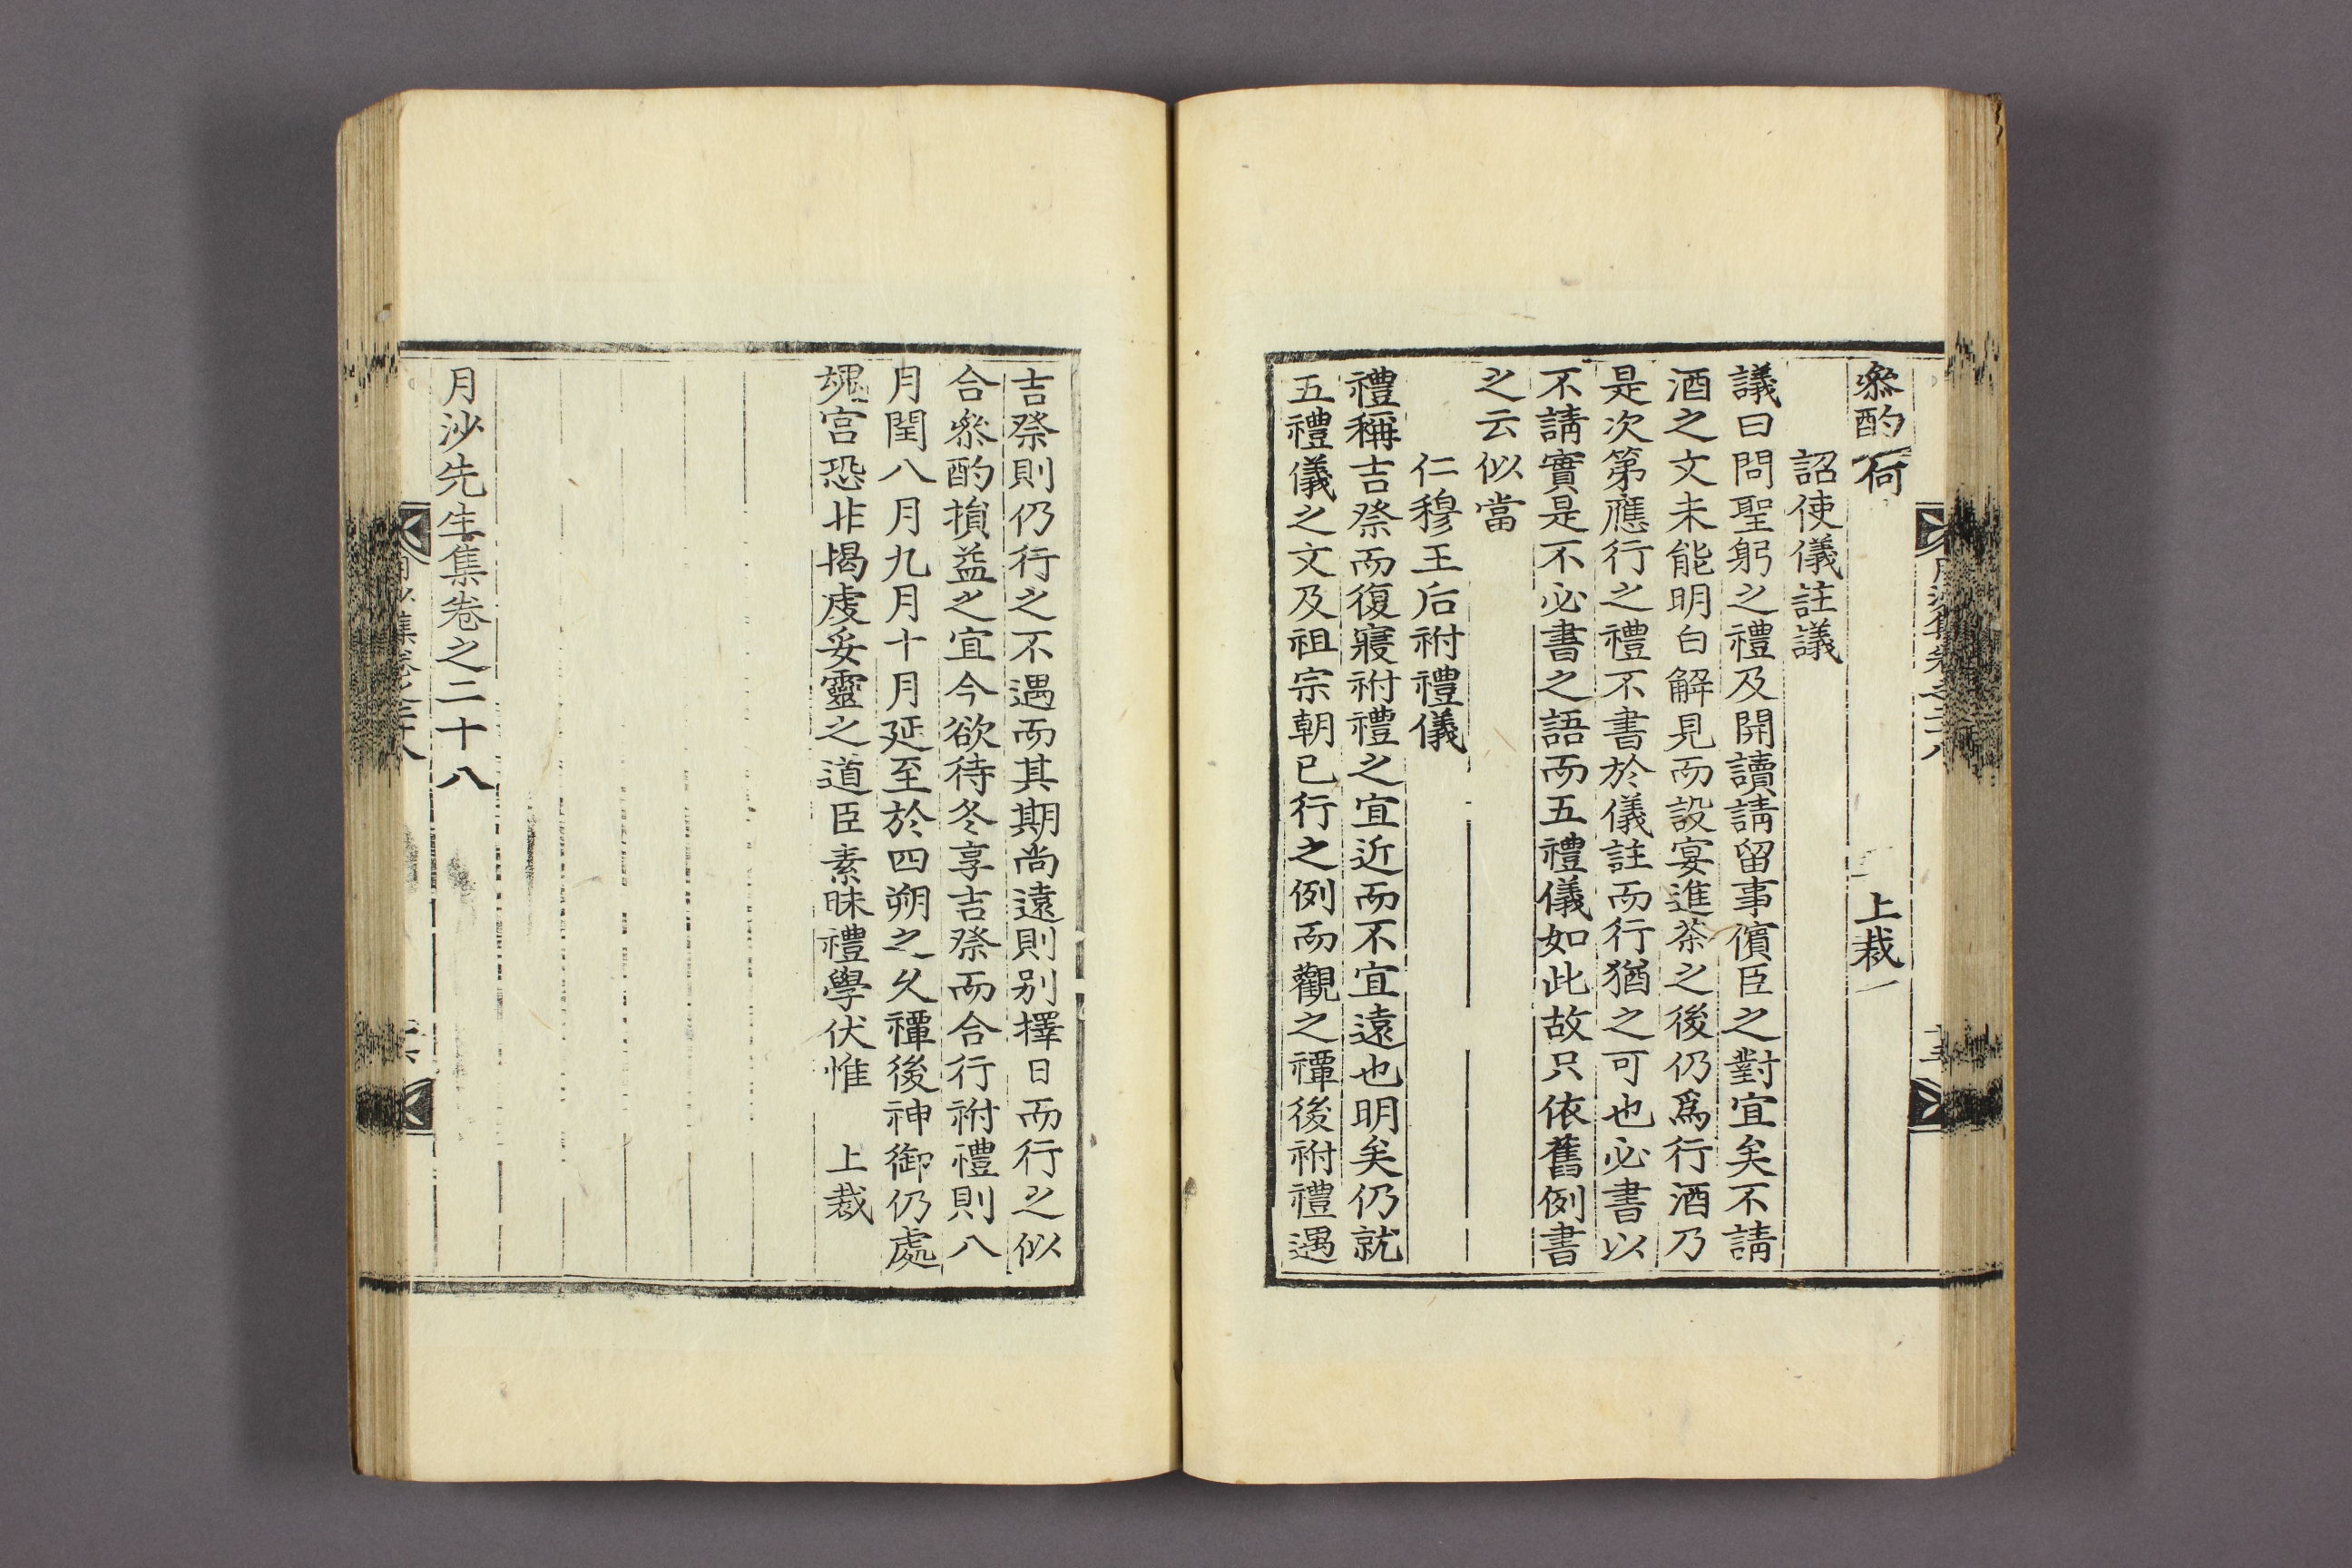 叅酌何 上裁
詔使儀註議
議曰問聖躬之禮及開讀請留事儐臣之對宜矣不請
酒之文未能明白解見而設宴進茶之後仍爲行酒乃
是次第應行之禮不書於儀註而行猶之可也必書以
不請實是不必書之語而五禮儀如此故只依舊例書
之云似當
仁穆王后祔禮儀
禮稱吉祭而復寢祔禮之宜近而不宜遠也明矣仍就
五禮儀之文及祖宗朝已行之例而觀之禫後祔禮遇
吉祭則仍行之不遇而其期尚遠則別擇日而行之似
合叅酌損益之宜今欲待冬享吉祭而合行祔禮則八
月閏八月九月十月延至於四朔之久禫後神御仍處
魂宮恐非揭虔妥靈之道臣素昧禮學伏惟 上裁
月沙先生集卷之二十八